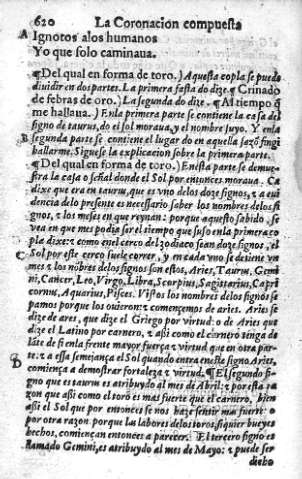 620 La Coronacion compuesta
A Ignotos alos humanos
Yo que solo caminaua.
¶Del qual en forma de toro.) Aquesta copla se puede
diuidir en dos partes. La primera fasta do dize. ¶ Crinado
de febras de oro.) La segunda do dize. ¶Al tiempo q̃
me hallaua.) En la primera parte se contiene la casa del
signo de taurus, do el sol moraua, y el nombre suyo. Y en la
B segunda parte se contiene el lugar do en aquella sazõ fingi
hallarme. Siguese la explicacion sobre la primera parte.
¶Del qual en forma de toro.) En esta parte se demue-
stra la casa o señal donde el Sol por entonces moraua. Ca
dixe que era en taurus, que es vno delos doze signos, z a eui
dencia delo presente es necessario saber los nombres delos si
gnos, z los meses en que reynan: porque aquesto sabido, se
vea en que mes podia ser el tiempo que suso en la primera co
pla dixe: z como en el cerco del zodiaco sean doze signos, el
C Sol por este cerco suele correr, y en cada vno se detiene vn
mes z los nõbres delos signos son estos, Aries, Taurus, Gemi
ni, Cancer, Leo, Virgo, Libra, Scorpius, Sagitarius, Capri
cornus, Aquarius, Pisces. Vistos los nombres delos signos se
pamos porque los ouieron: z comencemos de aries. Aries se
dize de ares, que dize el Griego por virtud: o de Aries que
dize el Latino por carnero, z assi como el carnero tenga de
láte de si en la frente mayor fuerça z virtud que en otra par
te: z a essa semejança el Sol quando entra en este signo Aries,
D comiença a demostrar fortaleza z virtud. ¶ El segundo si-
gno que es taurus es atribuydo al mes de Abril: z por esta ra
zon que assi como el toro es mas fuerte que el carnero, bien
assi el Sol que por entonces se nos haze sentir mas fuerte: o
por otra razon porque las labores delos toros, siquier bueyes
hechos, comiençan entonces a parecer. El tercero signo es
llamado Gemini, es atribuydo al mes de Mayo: z puede ser
dicho